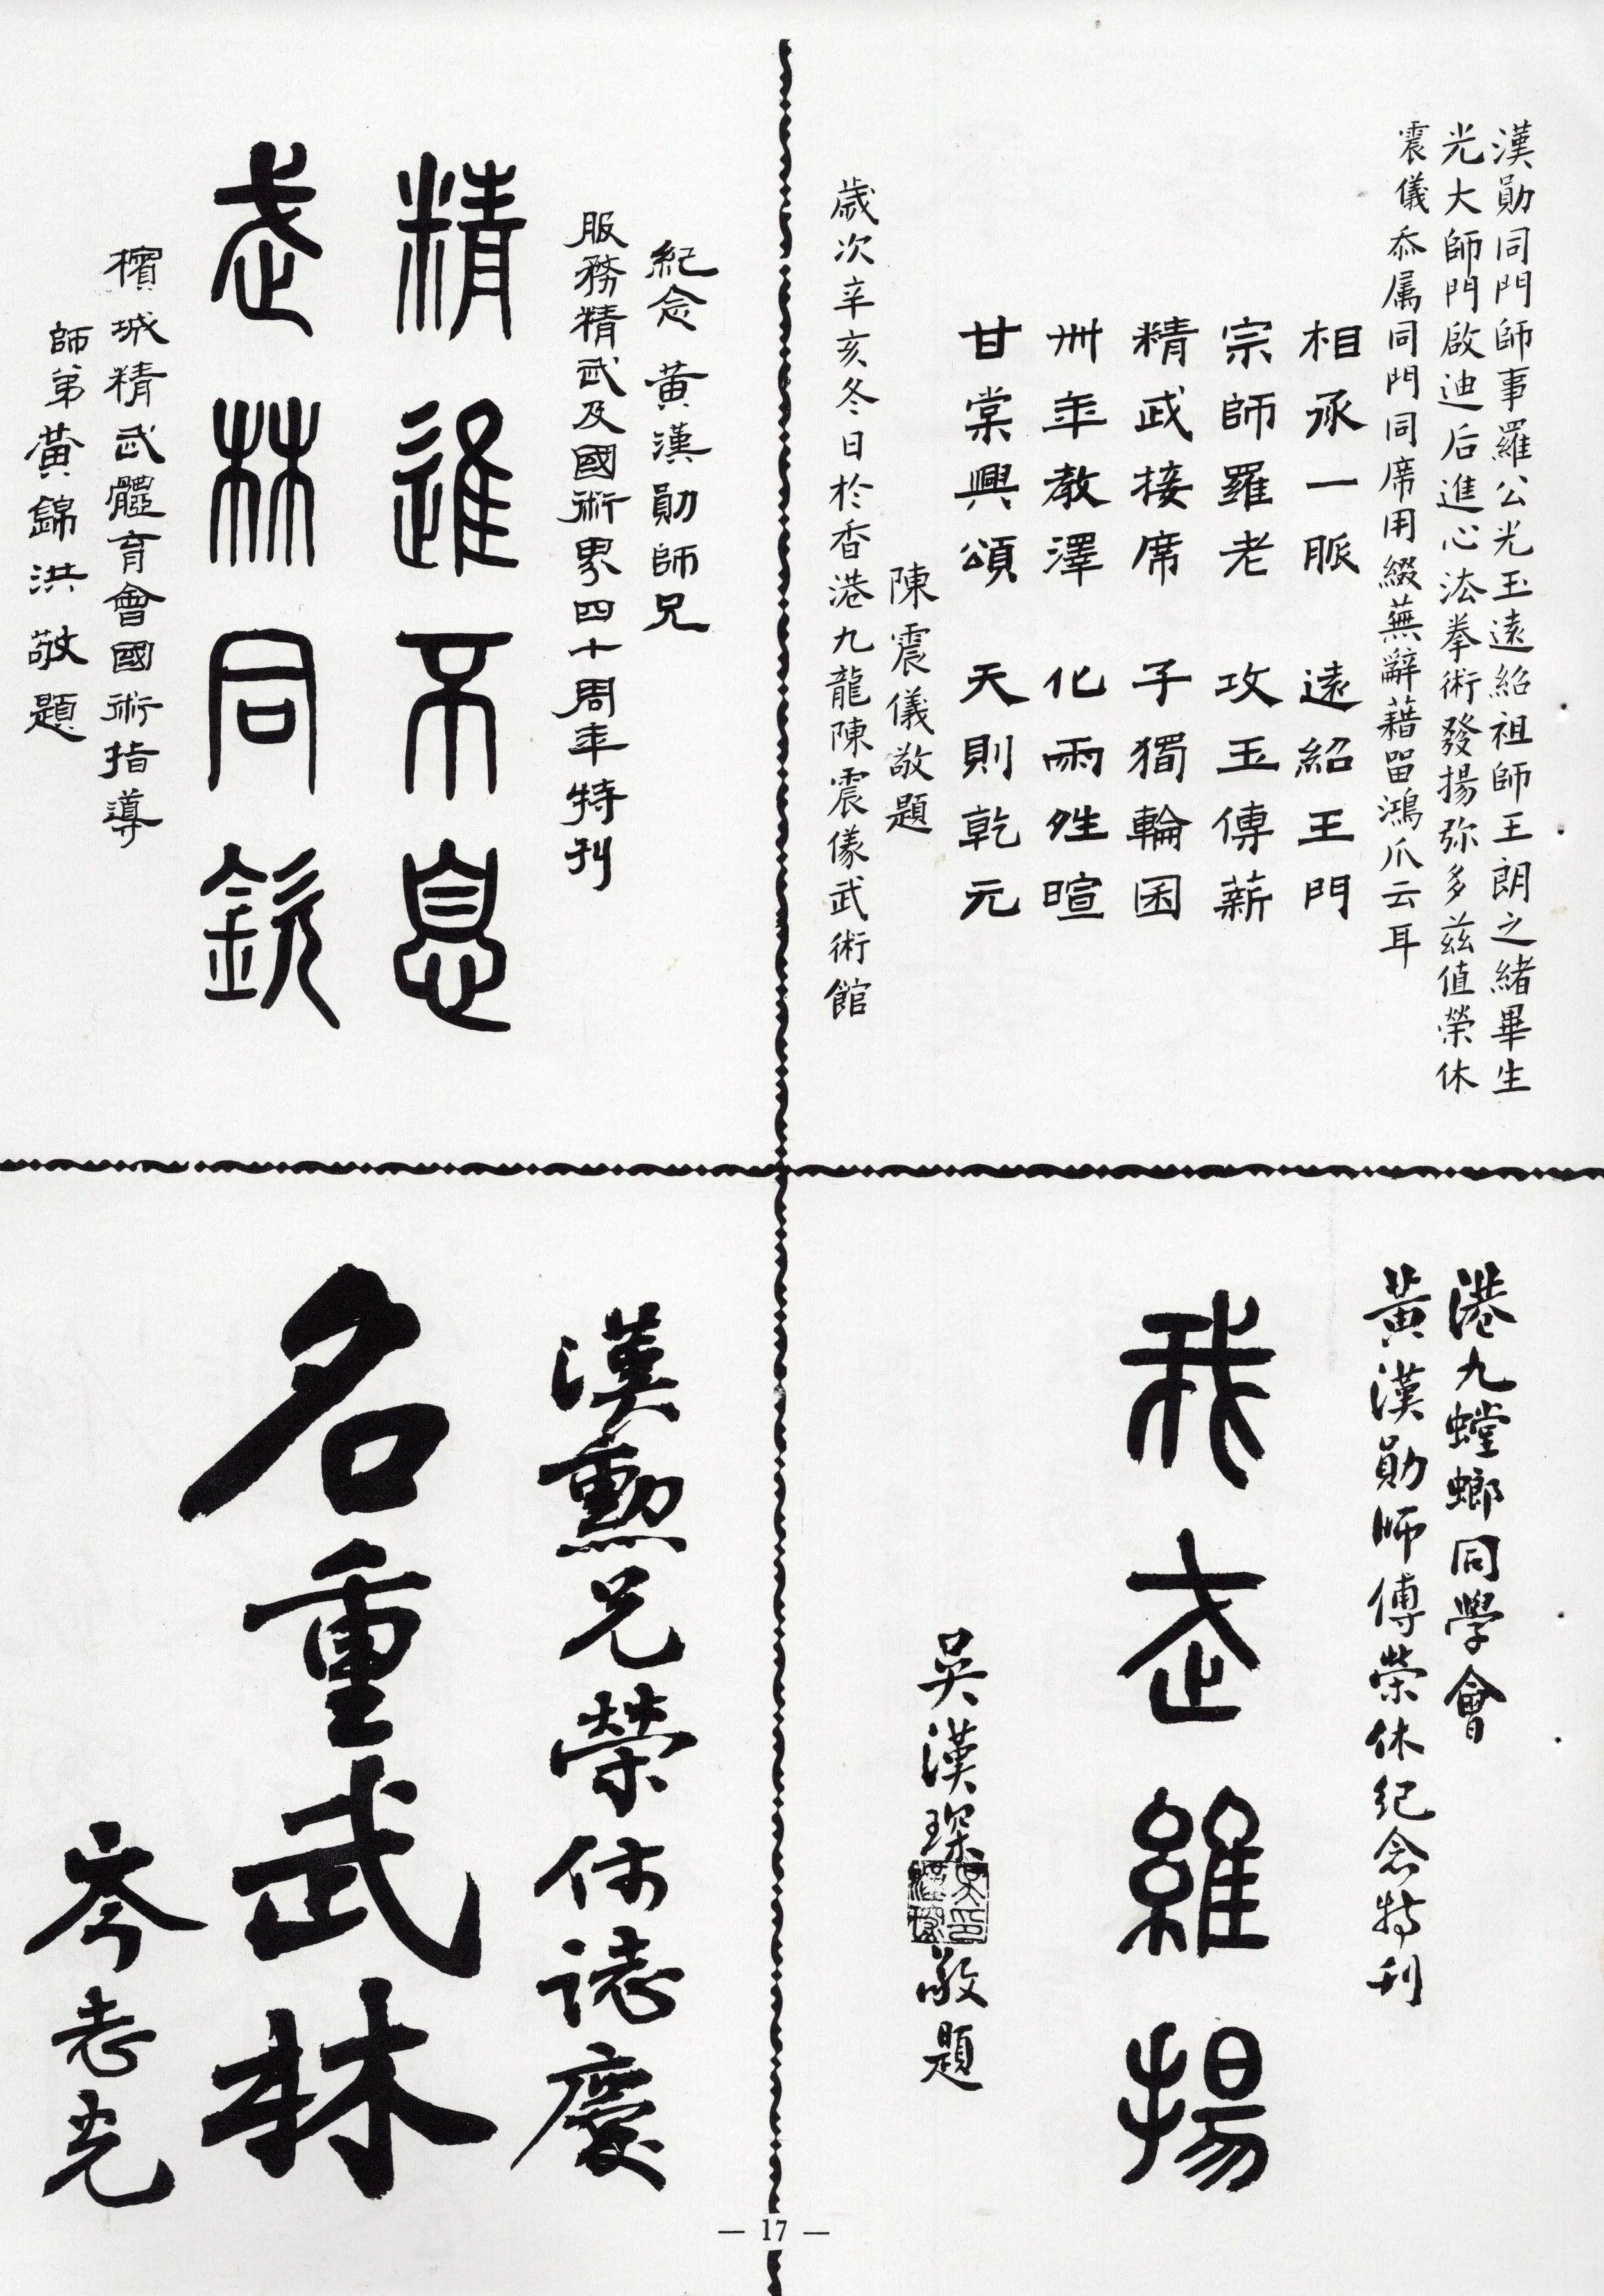 漢勛同門師事羅公光玉遠紹祖師王朗之緒畢生
光大師門啟迪后進心法拳術發揚弥多茲值榮休
震儀忝属同門同席用綴蕪辭藉留鴻爪云耳
相承一脈 遠紹王門
宗師羅老 攻玉傳薪
精武接席 子獨輪囷
卅年教澤 化雨甡暄
甘棠興頌 天則乾元
陳震儀敬題
歲次辛亥冬日於香港九龍陳震儀武術館
紀念 黃漢勛師兄
服務精武及國術界四十周年特刊
精進不息
武林同欽
檳城精武體育會國術指導
師弟黃錦洪敬題
港九螳螂同學會
黃漢勛師傅榮休紀念特刊
我武維揚
吳漢琛敬題
漢勳兄榮休誌慶
名重武林
岑老光
— 17 —